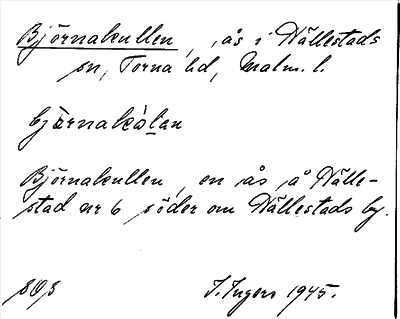 Björnakullen, ås i Hällestads
sn, Torna hd, Malm. l.
bjö̀rnakö́lan
Björnakullen, en ås å Hälle-
stad nr 6 söder om Hällestads by.
I. Ingers 1945.